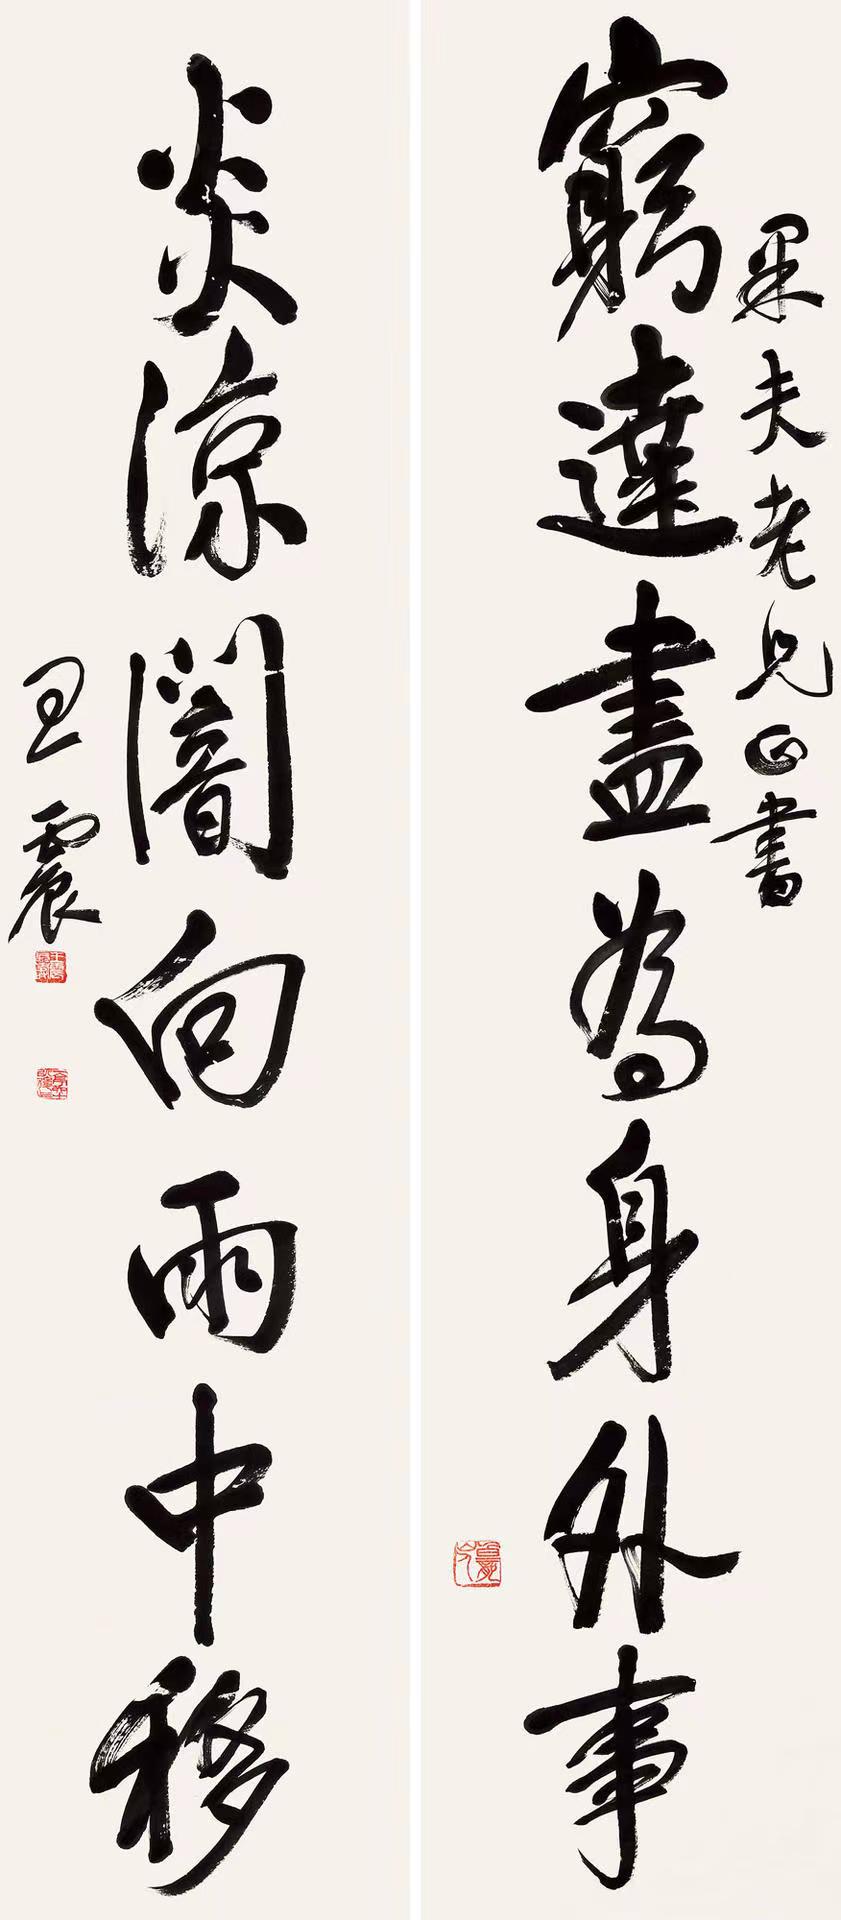 果夫老兄正書
窮達盡為身外事
炎涼闇向雨中移
王震